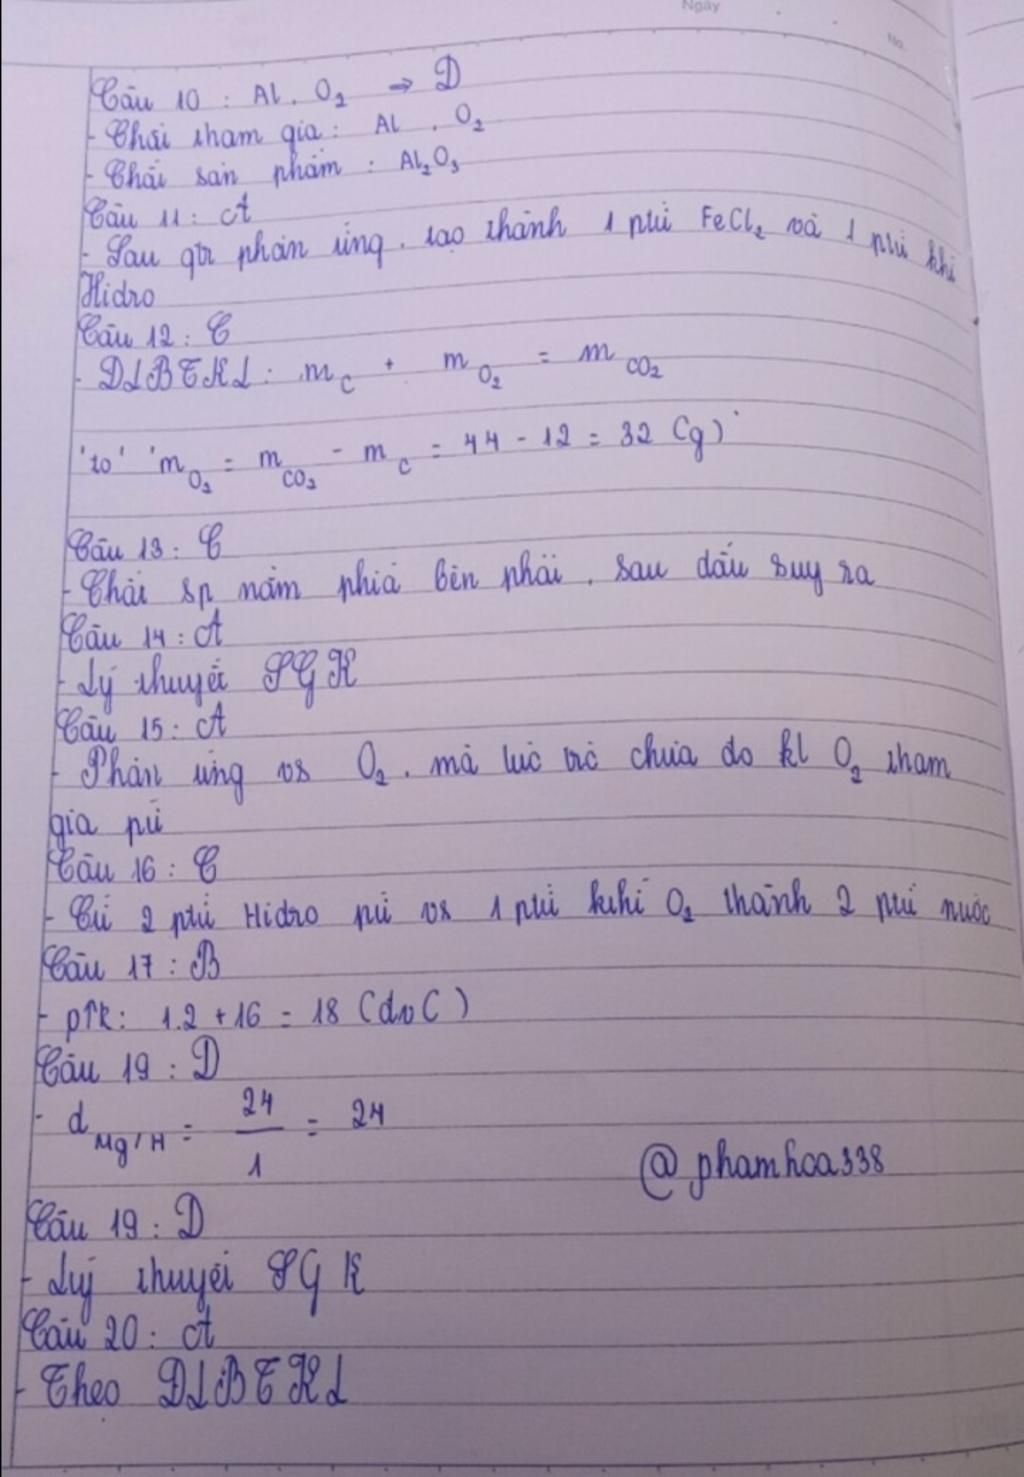 Ngày
No.
Câu 10 : Al, O₂ ⇒ D
- Chất tham gia : Al , O₂
- Chất sản phẩm : Al₂O₃
Câu 11 : A
- Sau qtr phản ứng, tạo thành 1 ptử FeCl₂ và 1 ptử khí
Hidro
Câu 12 : C
- ĐLBTKL : m_C + m_O₂ = m_CO₂
m_O₂ = m_CO₂ - m_C = 44 - 12 = 32 (g)
Câu 13 : C
- Chất sp nằm phiá bên phải, sau dấu suy ra
Câu 14 : A
- Lý thuyết SGK
Câu 15 : A
- Phản ứng vs O₂, mà lúc trc chưa đo kl O₂ tham
gia pứ
Câu 16 : C
- Cứ 2 ptử Hidro pứ vs 1 ptử khí O₂ thành 2 ptử nước
Câu 17 : B
- ptk : 1.2 + 16 = 18 (đvC)
Câu 19 : D
- d Mg/H = 24/1 = 24
@phamhoa338
Câu 19 : D
- Lý thuyết SGK
Câu 20 : A
- Theo ĐLBTKL